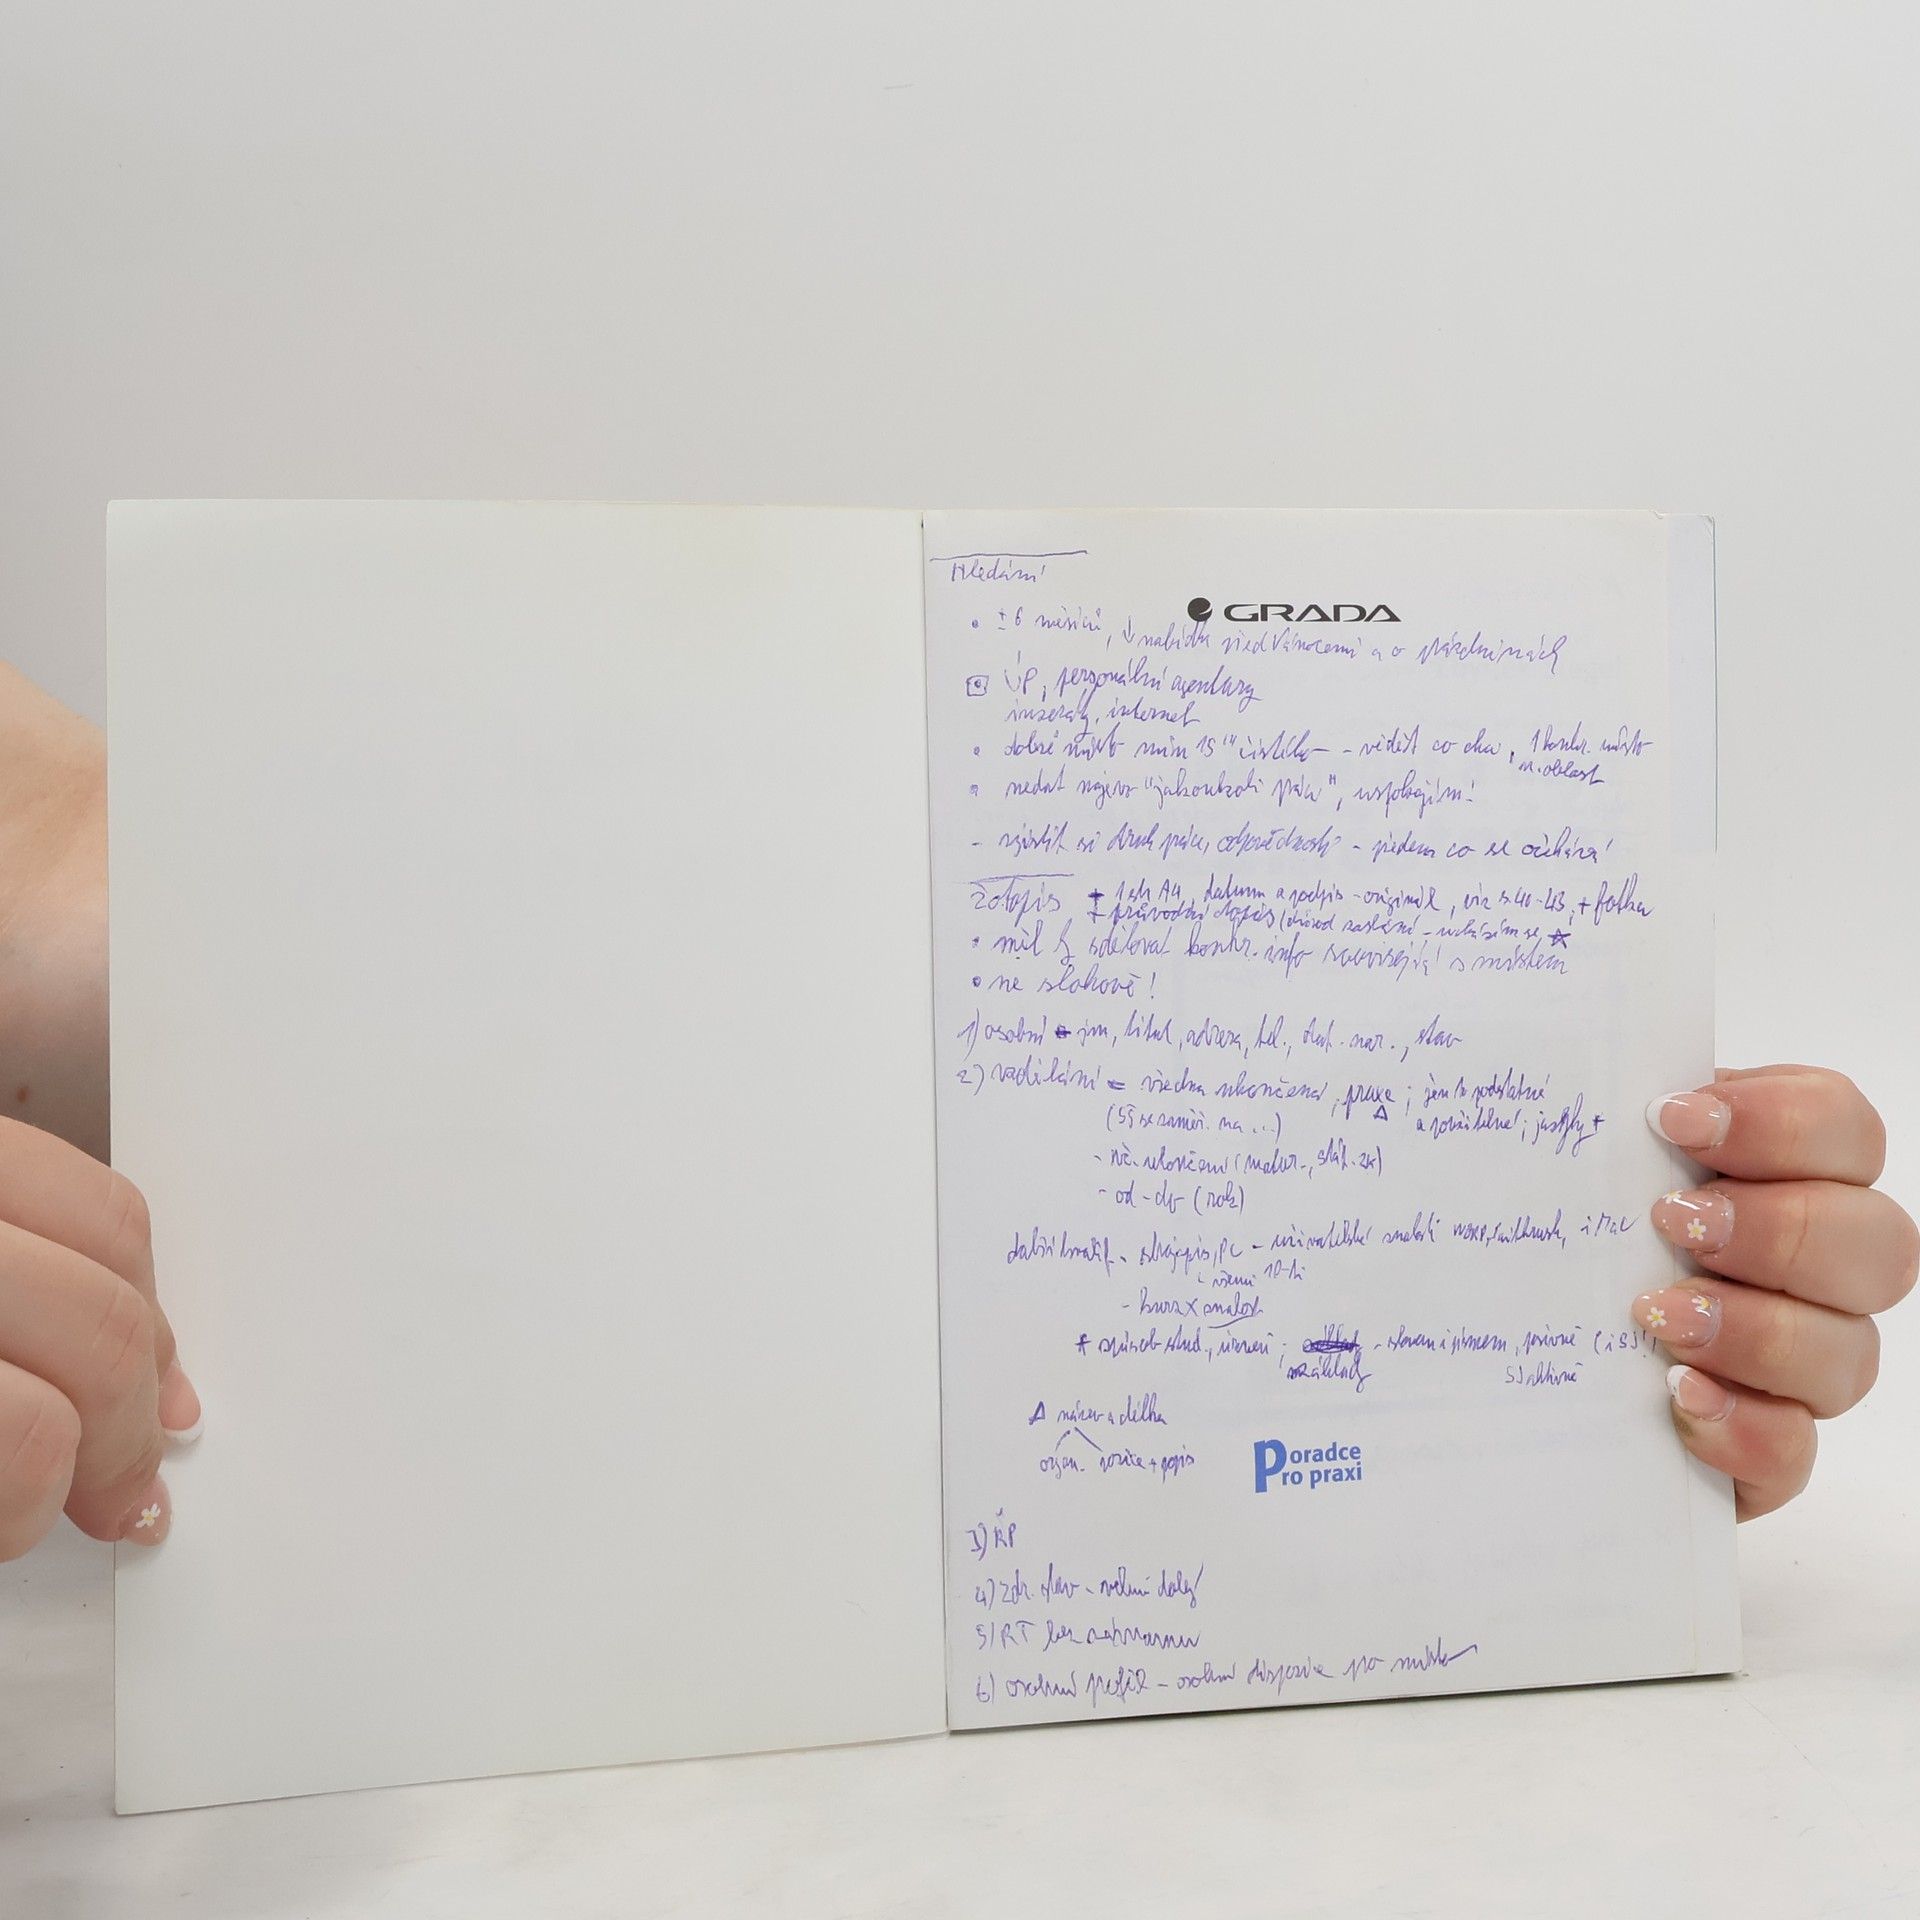 Hledání
GRADA
• ± 6 měsíců, ↓ nabídka před Vánocemi a o prázdninách
ÚP, personální agentury
inzeráty, internet
• dobré místo min 15 čistého - vědět co chci, 1 konkr. místo
n. oblast
• nedat najevo "jakoukoli práci", uspokojím!
- zjistit si druh práce, odpovědnosti - předem co se očekává!
Žotopis + 1 str A4, datum a podpis - originál, viz s. 40-43, + fotka
+ průvodní dopis (důvod zaslání - ucházím se
• měl by sdělovat konkr. info související s místem
• ne slohově!
1) osobní jm, titul, adresa, tel., dat. nar., stav
2) vzdělání - všechna ukončená, praxe ; jen to podstatné
(SŠ se zaměř. na ...) a použitelné ; jazyky *
- ukončení (matur., stát. zk)
- od - do (rok)
další kvalif - strojopis, PC - uživatelské znalosti i Mac
všemi 10-ti
- kurz x znalost
* způsob stud., úrovní ; základy - slovem i písmem, pasivně (i SJ!)
SJ aktivně
Δ název a délka
organ. pozice + popis
Poradce
Pro praxi
3) ŘP
4) zdr. stav - velmi dobrý
5) RT bez záznamu
6) osobní profil - osobní dispozice pro místo